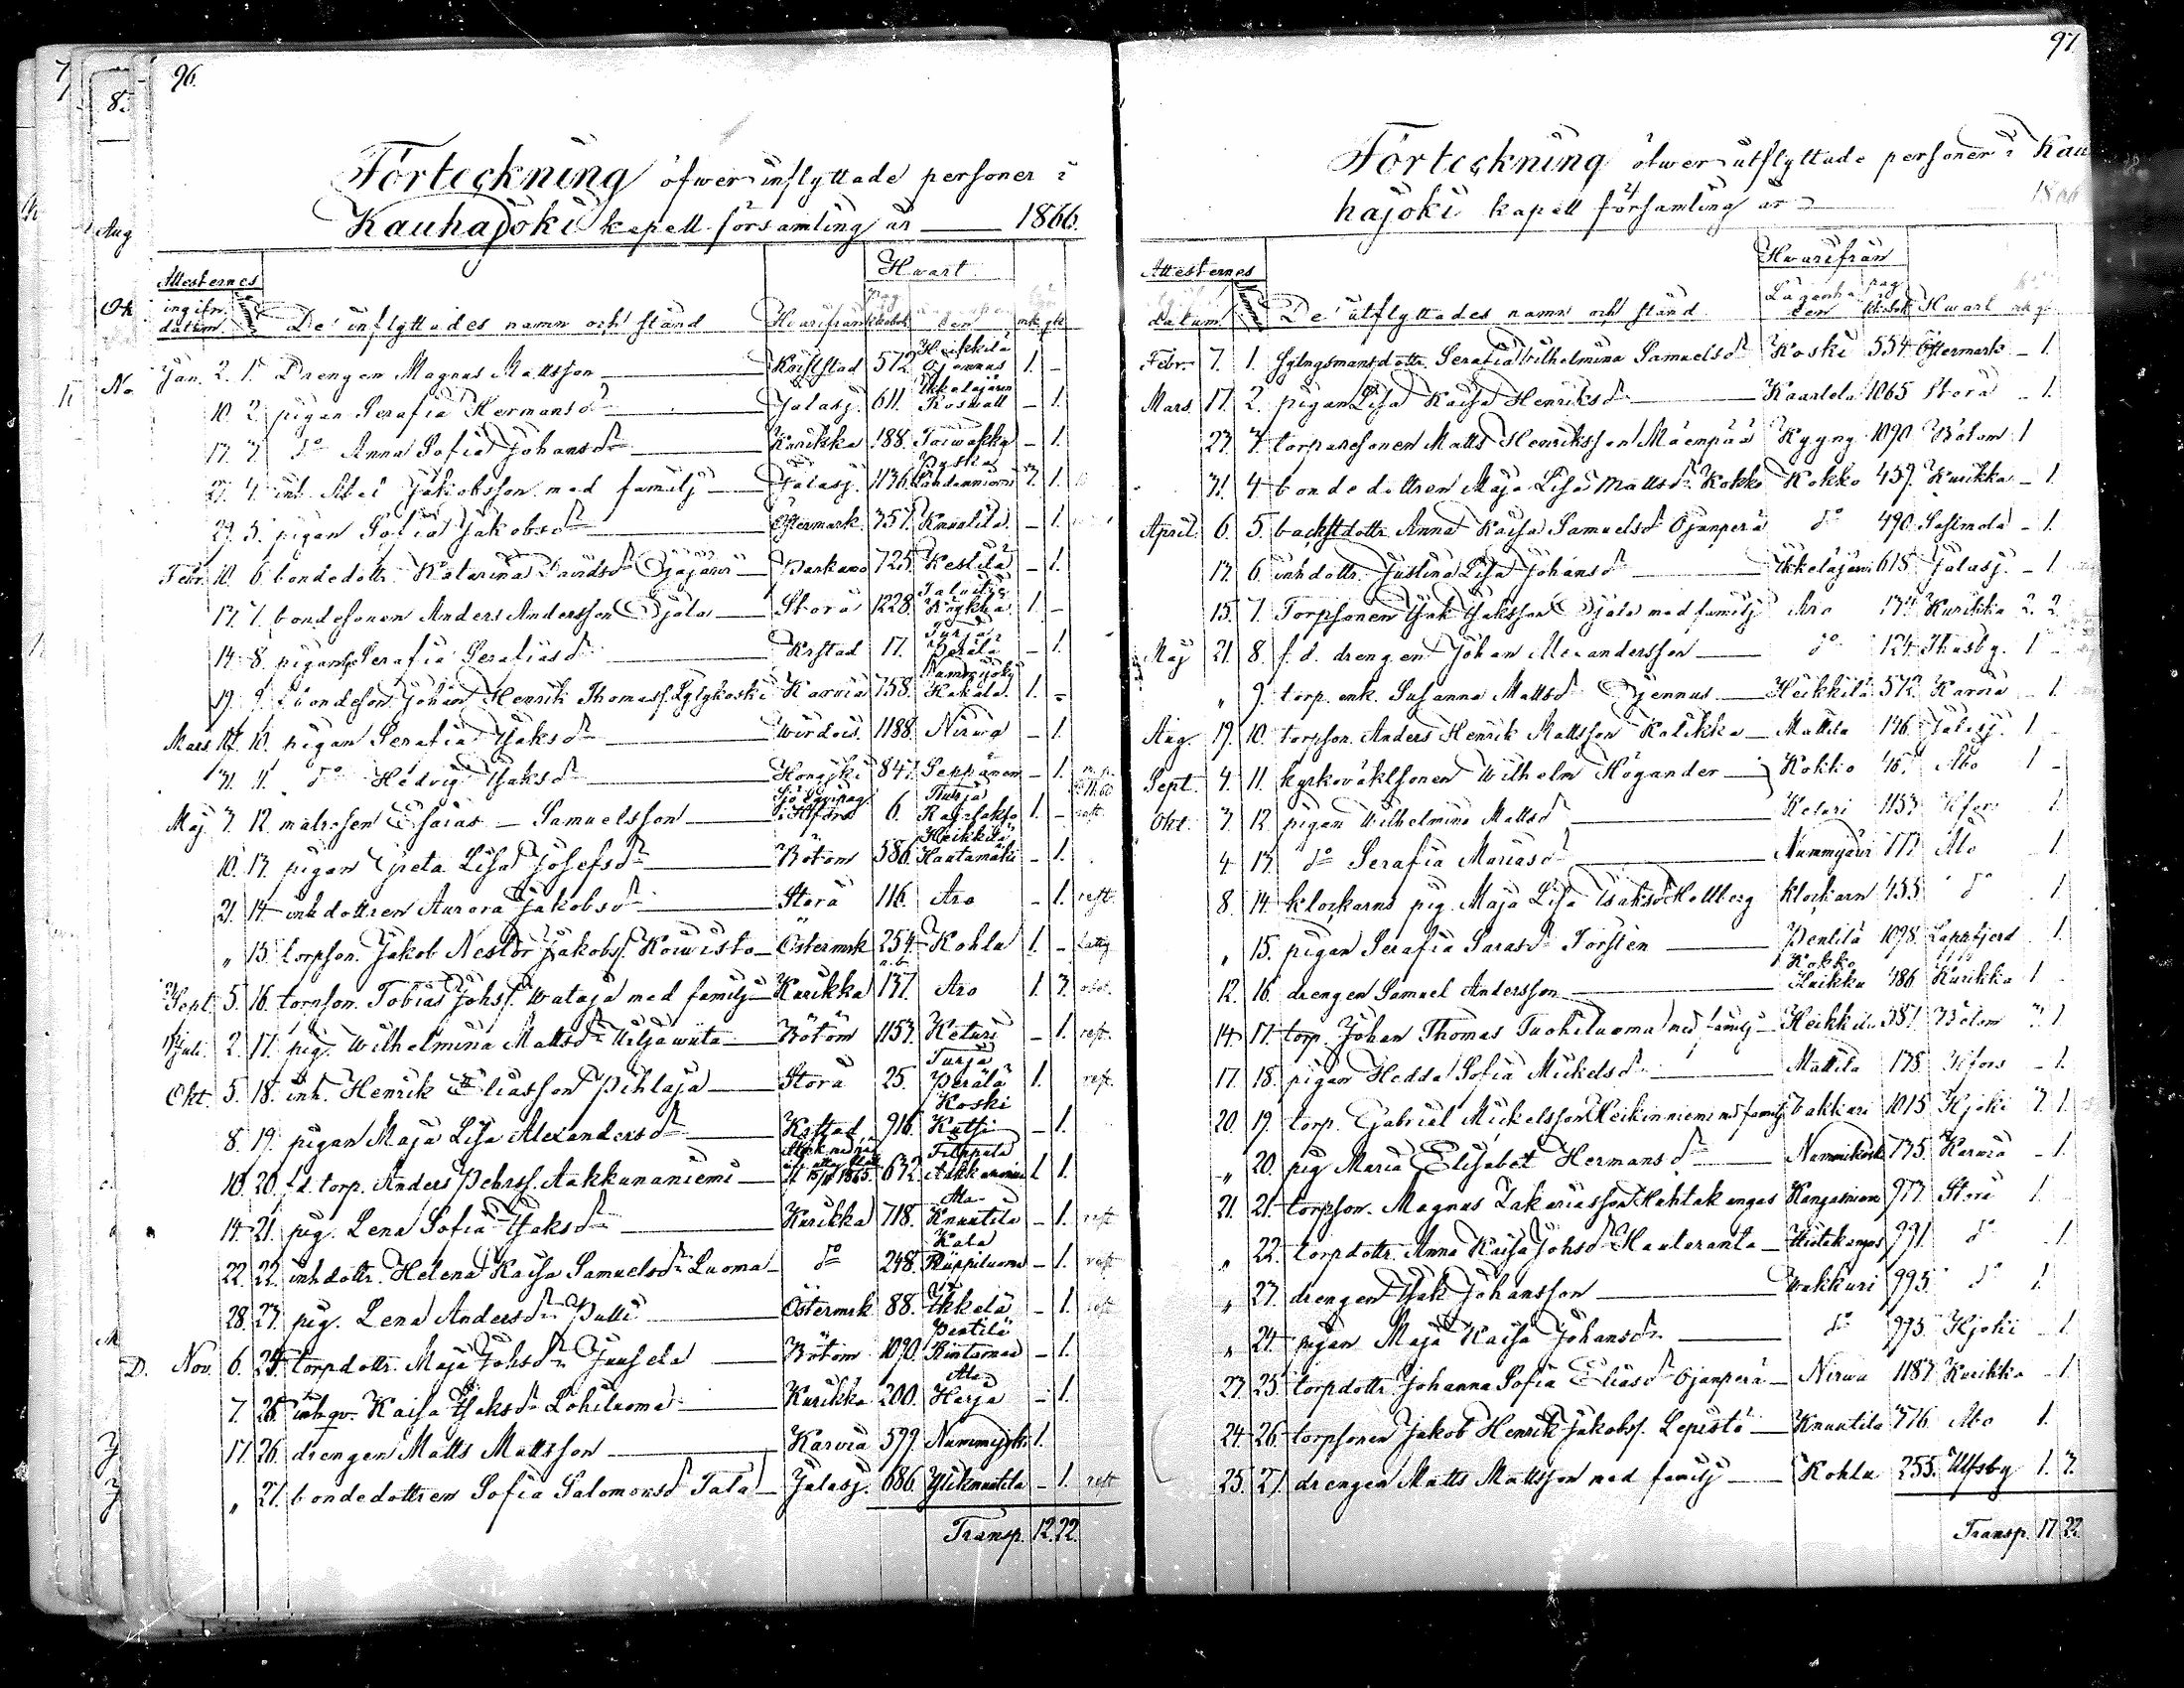 96.
Förteckning öfwer inflyttade personer i
Kauhajoki kapell församling år 1866.
Attesternes
ingifn. datum. De inflyttades namn och stånd Hwarifrån Hwart mk qk
Jan. 2. 1. Drengen Magnus Mattsson Kriststad 572. Heikkilä Ojennus 1. -
10. 2. pigan Serafia Hermansdr Jalasj. 611. Ikkeläjärvi Koswall - 1.
17. 3. do Anna Sofia Johansdr Kurikka 188. Toiwakka - 1.
27. 4. inh. Abel Jakobsson med familj Jalasj. 1136. 3. 1.
29. 5. pigan Sofia Jakobsdr Östermark 351. Knuutila - 1.
Febr. 10. 6. bondedottr. Katarina Davidsdr Parkano 725. Keslilä - 1.
13. 7. bondesonen Anders Andersson Ojala Storå 1228. 1. -
14. 8. pigan Serafia Serafiasdr Krstad 17. Turja Perälä - 1.
19. 9. bondeson Johan Henrik Thomass. Lylykoski Karvia 758. Nummijärvi Kakala 1. -
Mars 17. 10. pigan Serafia Isaksdr Wirdois. 1188. Nirwa - 1.
31. 11. do Hedvig Isaksdr Hongjki 847. Seppänen - 1.
Maj 3. 12. matrosen Esaias Samuelsson Sjö Eqvipag. i Hfors 6. Turja 1. - rest.
10. 13. pigan Greta Lisa Josefsdr Bötom 586. Heikkilä Hautamäki - 1.
21. 14. inhdottren Aurora Jakobsdr Storå 116. Aro - 1. rest.
" 15. torpson. Jakob Nestor Jakobs. Koiwisto Östermrk 254. Kohlu 1. - fattig
Sept. 5. 16. torpson. Tobias Johs. Wataja med familj Kurikka 137. Aro 1. 3.
Juli. 2. 17. pig. Wilhelmina Mattsdr Wiljawiita Bötom 1153. Keturi - 1. rest.
Okt. 5. 18. inh. Henrik Eliasson Pihlaja Storå 25. Turja Perälä 1. rest.
8. 19. pigan Maja Lisa Alexandersdr Krstad 916. Koski Katti - 1.
10. 20. f.d. torp. Anders Pehrss. Aakkunaniemi 1865. 632. Filppula Aakkunaniemi 1. 1.
14. 21. pig. Lena Sofia Isaksdr Kurikka 718. Ala Knuutila - 1. rest
22. 22. inhdottr. Helena Kaisa Samuelsdr Luoma do 248. Kala Pläppiluoma - 1. rest
28. 23. pig. Lena Andersdr Pulli Östermrk 88. Yli Ikkelä - 1. rest
Nov. 6. 24. torpdottr. Maja Johsdr Juusela Bötom 1090. Pentilä Rintamaa - 1.
7. 25. inhqv. Kaisa Isaksdr Lohiluoma Kurikka 200. Ala Harja - 1.
17. 26. drengen Matts Mattsson Karvia 599. Nummijärvi 1.
" 27. bondedottren Sofia Salomonsdr Tala Jalasj. 686. Yliknuutila - 1. rest
Transp. 12. 22.
97.
Förteckning öfwer utflyttade personer i Kau
hajoki kapell församling år 1866
Attesternes Hwarifrån
datum. De utflyttades namn och stånd Lägenheten pag. Hwart mk qk
Febr. 7. 1. Serafia Wilhelmina Samuelsdr Koski 554. Östermark - 1.
Mars. 17. 2. pigan Lisa Kaisa Henriksdr Kaarlela 1065 Storå - 1.
23. 3. torparesonen Matts Henriksson Mäenpää Kyyny 1090 Bötom 1
31. 4. bondedottren Maja Lisa Mattsdr Kokko Kokko 459. Kurikka - 1.
April. 6. 5. backstdottr. Anna Kaisa Samuelsdr Ojanperä do 490. Sastmola - 1.
13. 6. inhdottr. Justina Lisa Johansdr Ikkeläjärvi 615 Jalasj. - 1.
15. 7. Torpsonen Isak Isaksson Ojala med familj Aro 137 Kurikka 2. 2.
Maj 21. 8. f.d. drengen Johan Alexandersson do 124 Ikasby. 1 -
" 9. torp. enk. Susanna Mattsdr Ojennus Heikkilä 572. Karvia - 1.
Aug. 19. 10. torpson. Anders Henrik Mattsson Kalikka Mattila 176. Jalasj. 1
Sept. 4. 11. kyrkoväktsonen Wilhelm Högander Kokko Åbo 1 -
Okt. 3. 12. pigan Wilhelmina Mattsdr Keturi 1153. Hfors 1.
4. 13. do Serafia Mariasdr Nummijärvi 777. Åbo 1.
8. 14. klockarns pig. Maja Lisa Isaksdr Hollberg Klockarn 455. do 1.
" 15. pigan Serafia Sarasdr Torstén Pentilä 1098. Lappfjerd 1.
12. 16. drengen Samuel Andersson Kokko Luikku 486 Kurikka 1
14. 17. torp. Johan Thomas Tuohiluoma med familj Heikkilä 581 Bötom 1
17. 18. pigan Hedda Sofia Mickelsdr Mattila 178. Hfors - 1.
20. 19. torp. Gabriel Mickelsson Heikinniemi md familj Wakkuri 1015. Hjoki 3. 1.
" 20. pig Maria Elisabet Hermansdr 775. Karvia - 1.
21. 21. torpson. Magnus Zakariasson Huhtakangas Kangasniemi 977. Storå 1.
" 22. torpdottr. Anna Kaisa Johsdr Hautaranta Hietakangas 991. do - 1
" 23. drengen Isak Johansson Wakkuri 995. do 1.
" 24. pigan Maja Kaisa Johansdr do 995. Hjoki - 1.
23. 25. torpdottr Johanna Sofia Eliasdr Ojanperä Nirwa 1187. Kurikka - 1.
24. 26. torpsonen Jakob Henrik Jakobs. Lepistö Knuutila 776. Åbo 1.
25. 27. drengen Matts Mattsson med familj Kohlu 255. Ulfsby 1. 3.
Transp. 17. 22.